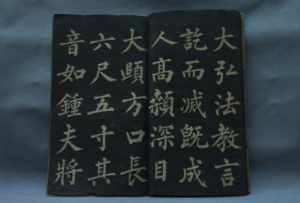 大弘法教言
託而滅既成
人高顙深目
大頤方口長
六尺五寸其
音如鍾夫將